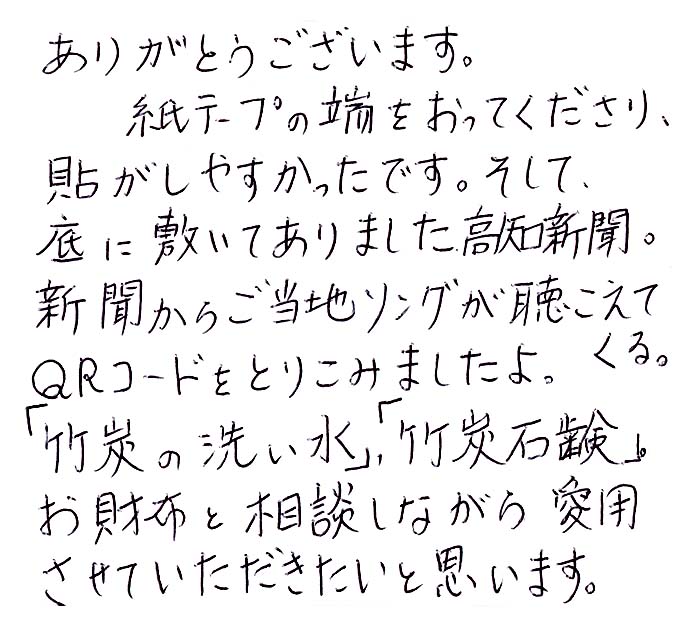 ありがとうございます。
紙テープの端をおってくださり、
貼がしやすかったです。そして、
底に敷いてありました高知新聞。
新聞からご当地ソングが聴こえて
くる。
QRコードをとりこみましたよ。
「竹炭の洗い水」,「竹炭石鹸」。
お財布と相談しながら愛用
させていただきたいと思います。